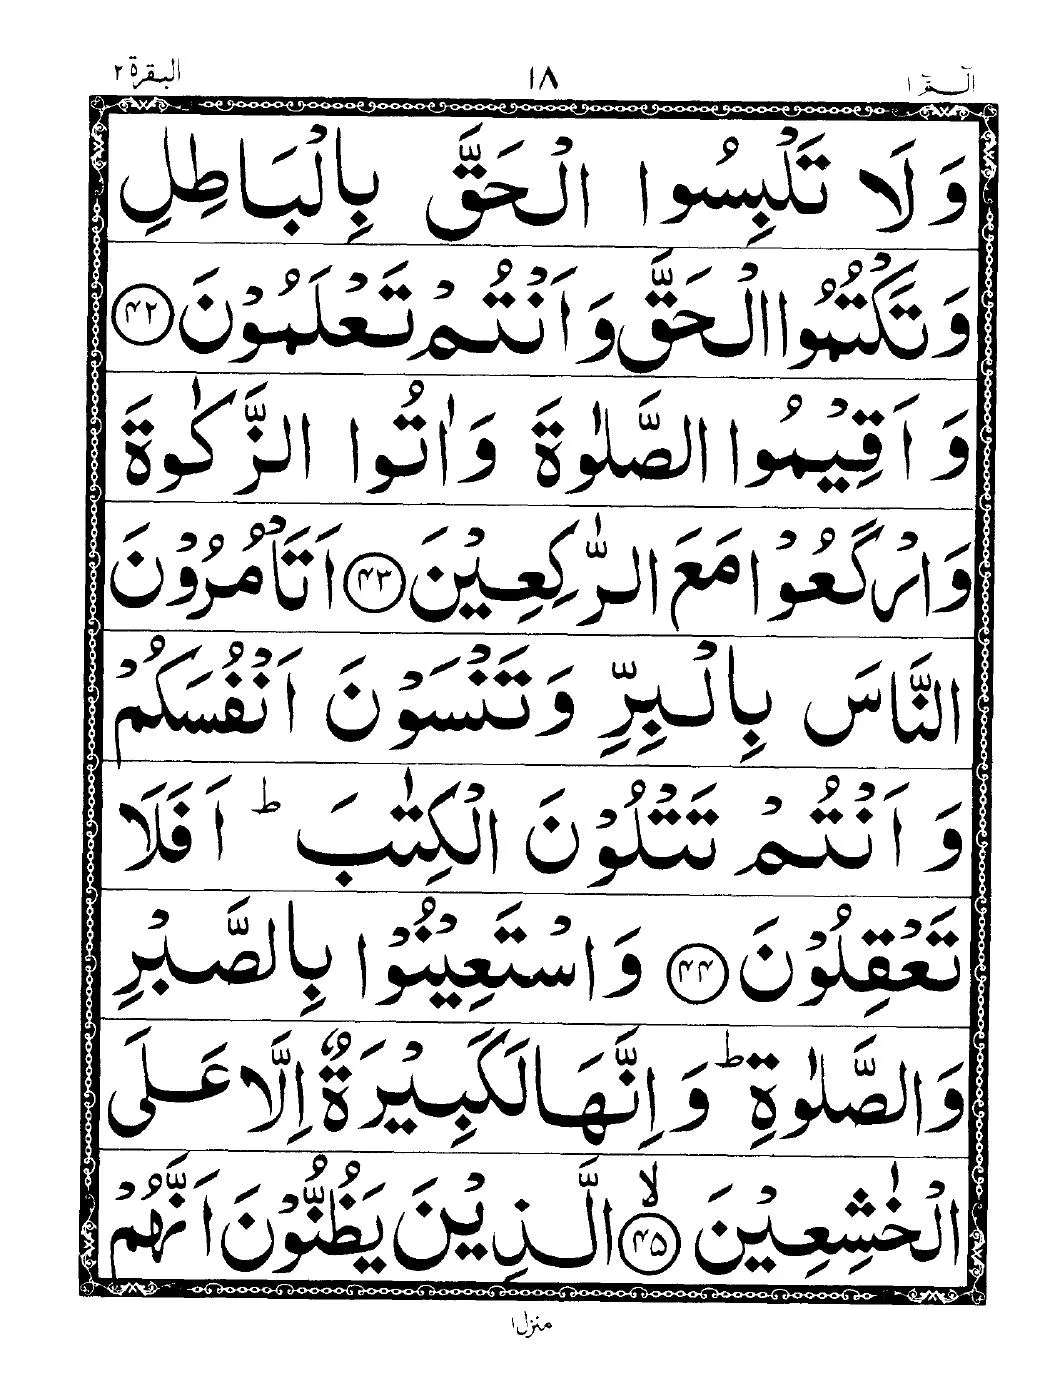 البقرة ٢ ١٨ الٓمّٓ ١
وَلَا تَلْبِسُوا الْحَقَّ بِالْبَاطِلِ
وَتَكْتُمُوا الْحَقَّ وَاَنْتُمْ تَعْلَمُوْنَ ﴿۴۲﴾
وَاَقِيْمُوا الصَّلٰوةَ وَاٰتُوا الزَّكٰوةَ
وَارْكَعُوْا مَعَ الرّٰكِعِيْنَ ﴿۴۳﴾ اَتَاْمُرُوْنَ
النَّاسَ بِالْبِرِّ وَتَنْسَوْنَ اَنْفُسَكُمْ
وَاَنْتُمْ تَتْلُوْنَ الْكِتٰبَ ؕ اَفَلَا
تَعْقِلُوْنَ ﴿۴۴﴾ وَاسْتَعِيْنُوْا بِالصَّبْرِ
وَالصَّلٰوةِ ؕ وَاِنَّهَا لَكَبِيْرَةٌ اِلَّا عَلَى
الْخٰشِعِيْنَ ﴿۴۵﴾ ۙ الَّذِيْنَ يَظُنُّوْنَ اَنَّهُمْ
منزل ١